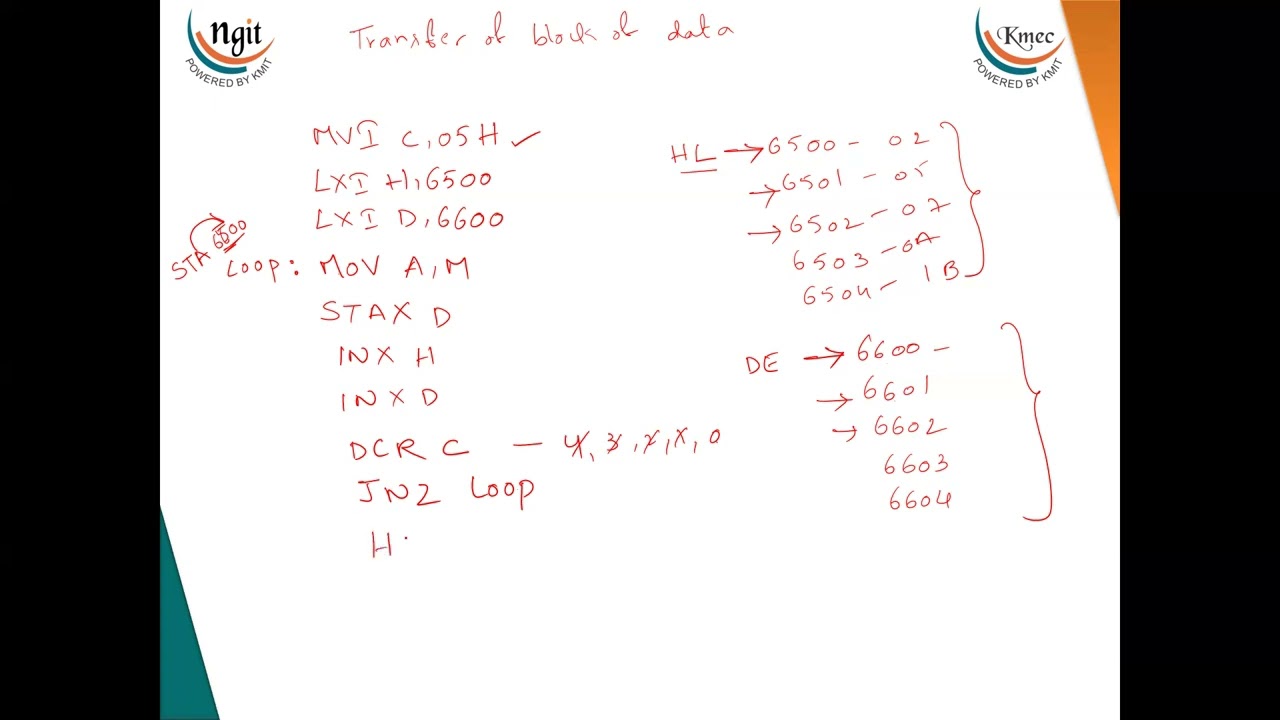 Ngit
POWERED BY KMIT
Transfer of block of data
Kmec
POWERED BY KMIT
MVI C, 05H
LXI H, 6500
LXI D, 6600
STA 6500
Loop: MOV A, M
STAX D
INX H
INX D
DCR C — 4, 3, 2, 1, 0
JNZ Loop
H
HL → 6500 - 02
→ 6501 - 05
→ 6502 - 07
6503 - 0A
6504 - 1B
DE → 6600 -
→ 6601
→ 6602
6603
6604